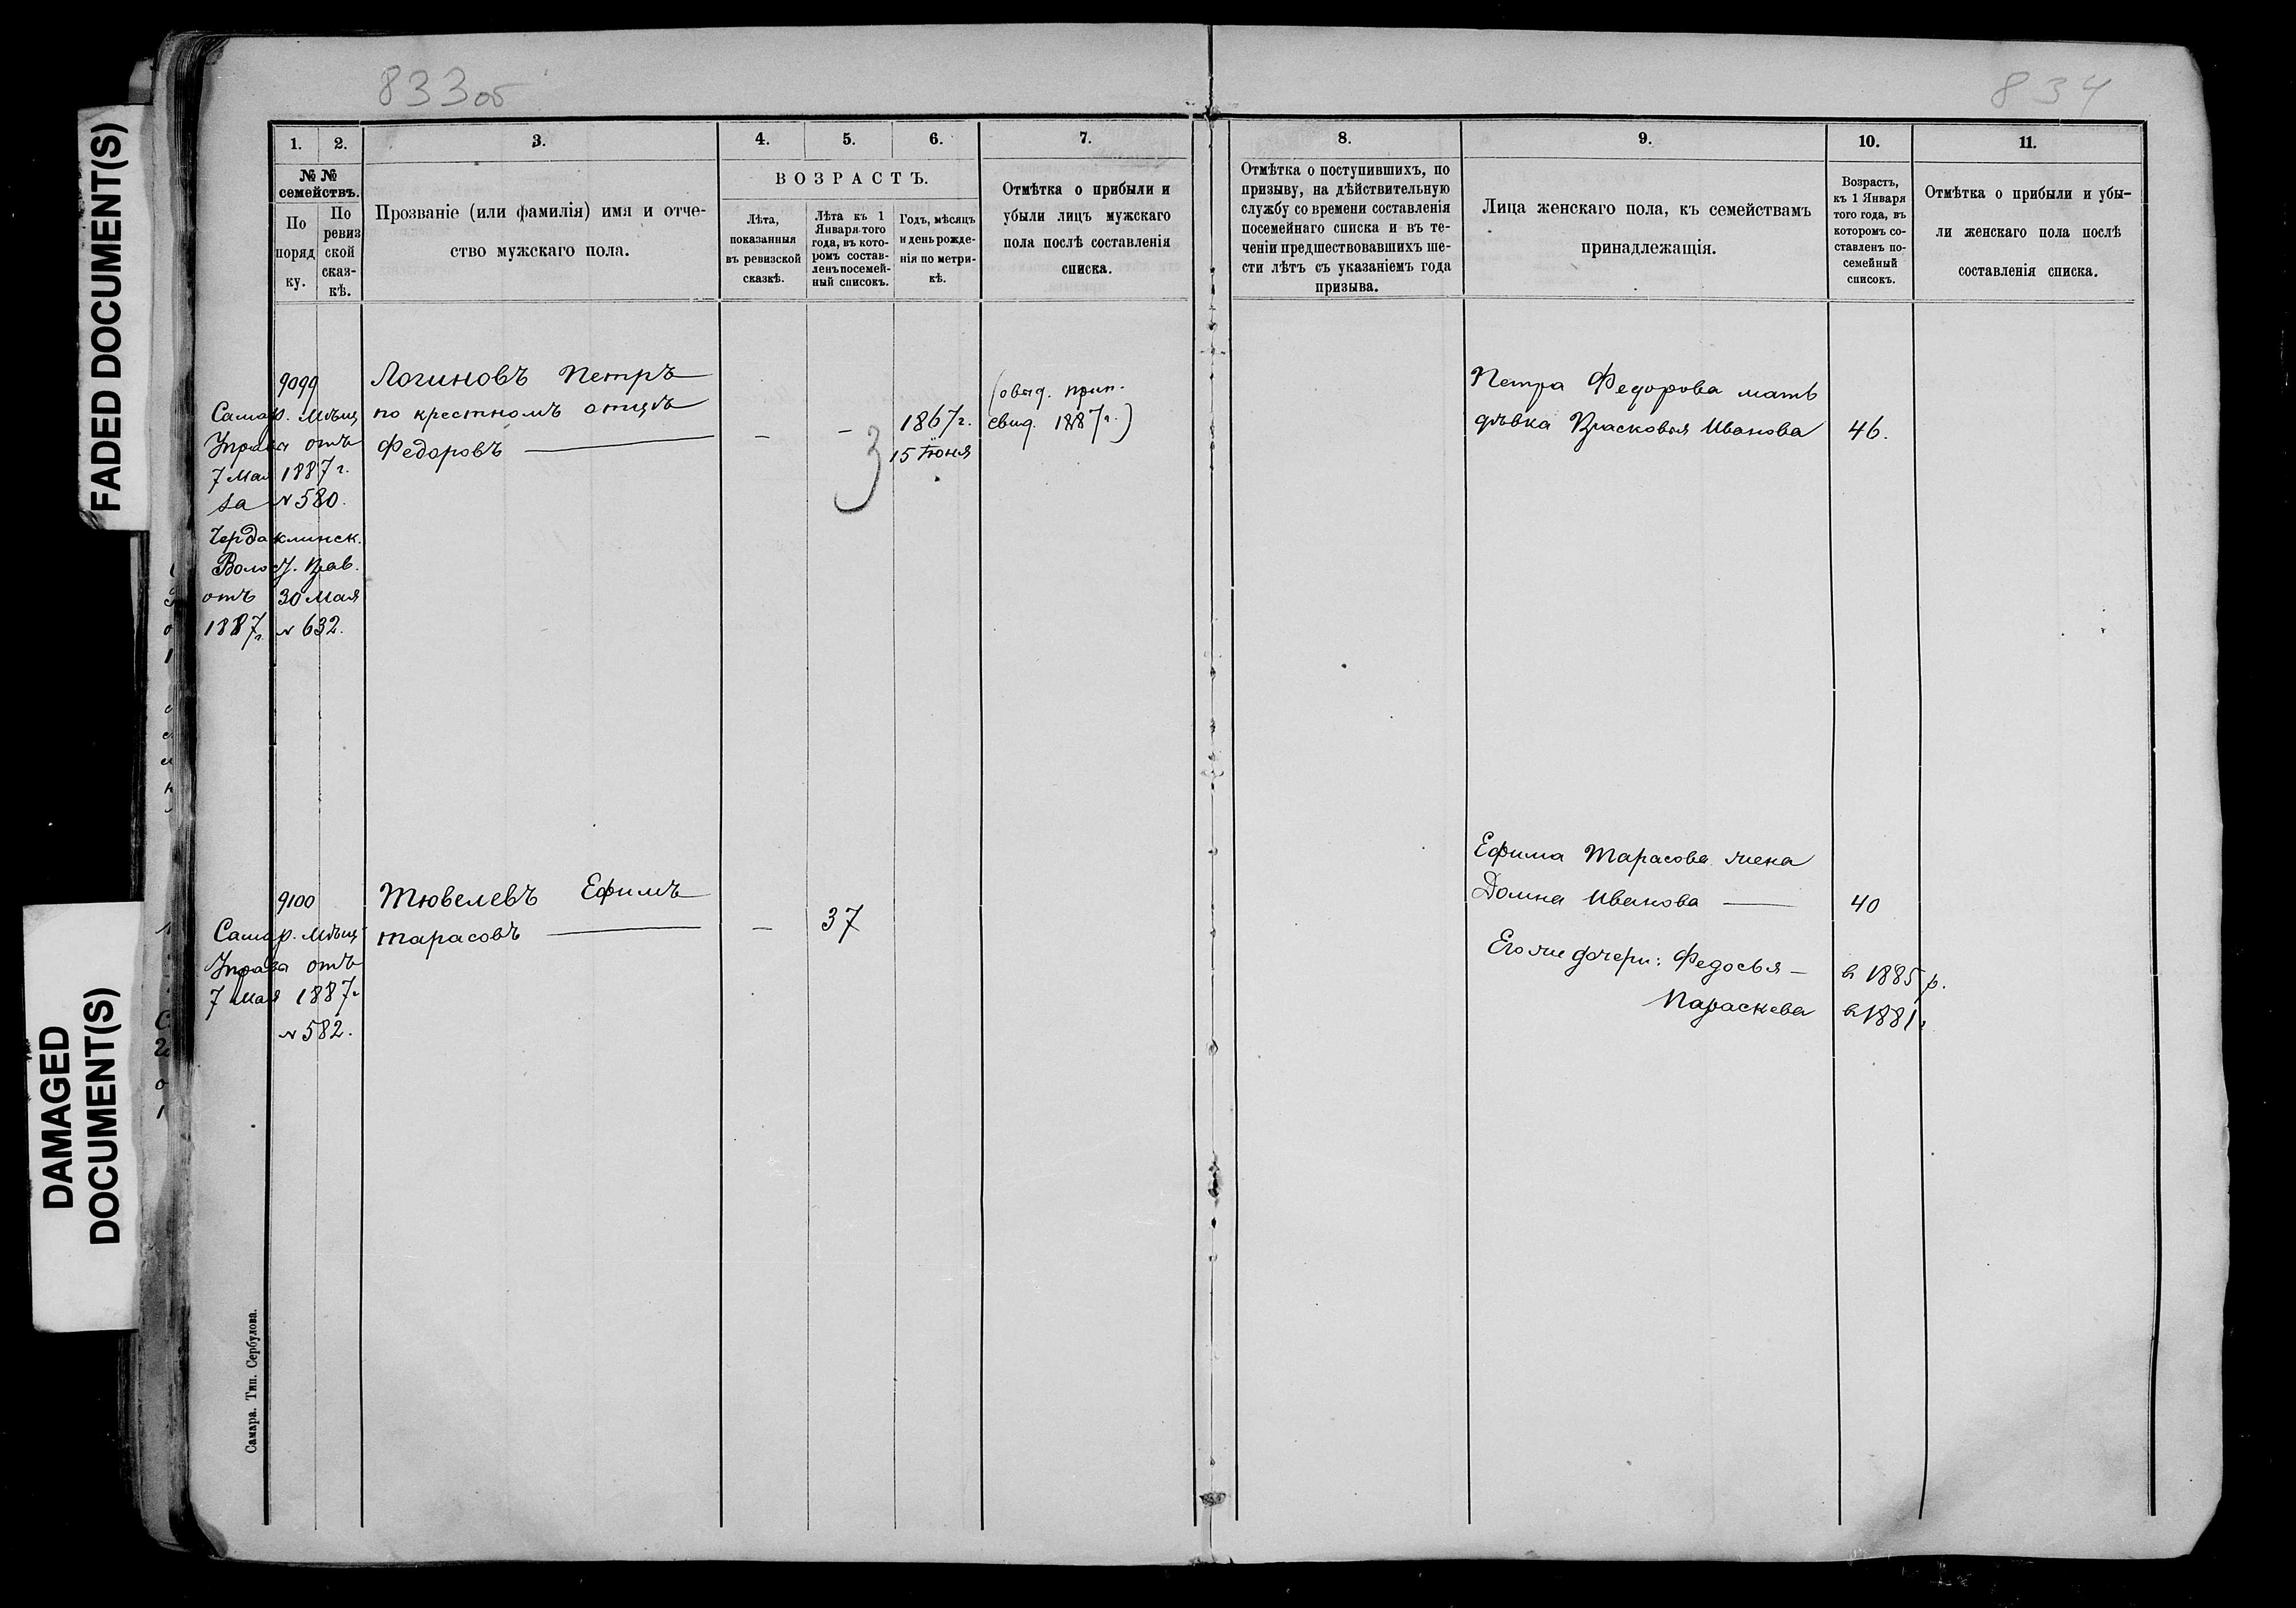 833 об
834
FADED DOCUMENT(S)
DAMAGED
DOCUMENT(S)
1.
2.
3.
4.
5.
6.
7.
8.
9.
10.
11.
№ №
семействъ.
По
поряд
ку.
По
ревиз
ской
сказ-
кѣ.
Прозваніе (или фамилія) имя и отче-
ство мужскаго пола.
ВОЗРАСТЪ.
Лѣта,
показанныя
въ ревизской
сказкѣ.
Лѣта къ 1
Января того
года, въ кото-
ромъ состав-
ленъ посемей-
ный списокъ.
Годъ, мѣсяцъ
и день рожде-
нія по метри-
кѣ.
Отмѣтка о прибыли и
убыли лицъ мужскаго
пола послѣ составленія
списка.
Отмѣтка о поступившихъ, по
призыву, на дѣйствительную
службу со времени составленія
посемейнаго списка и въ те-
ченіи предшествовавшихъ ше-
сти лѣтъ съ указаніемъ года
призыва.
Лица женскаго пола, къ семействамъ
принадлежащія.
Возрастъ,
къ 1 Января
того года, въ
которомъ со-
ставленъ по-
семейный
списокъ.
Отмѣтка о прибыли и убы-
ли женскаго пола послѣ
составленія списка.
9099
Самар. Мѣщ
Управа отъ
7 Мая 1887 г.
за № 580.
Чердаклинск.
Волос. Прав.
отъ 30 Мая
1887 г. № 632.
Логиновъ Петръ
по крестномъ отцѣ
Федоровъ
—
—
3
1867 г.
15 Іюня
прип.
свид. 1887 г.)
Петра Федорова мать
дѣвка Прасковья Иванова
46.
9100
Самар. Мѣщ
Управа отъ
7 Мая 1887 г
№ 582.
Тювелевъ Ефимъ
Тарасовъ
—
37
Ефима Тарасова жена
Домна Иванова —
40
Его же дочери: Федосья —
в 1885 р.
Параскева
в 1881 г
Самара. Тип. Сербулова.